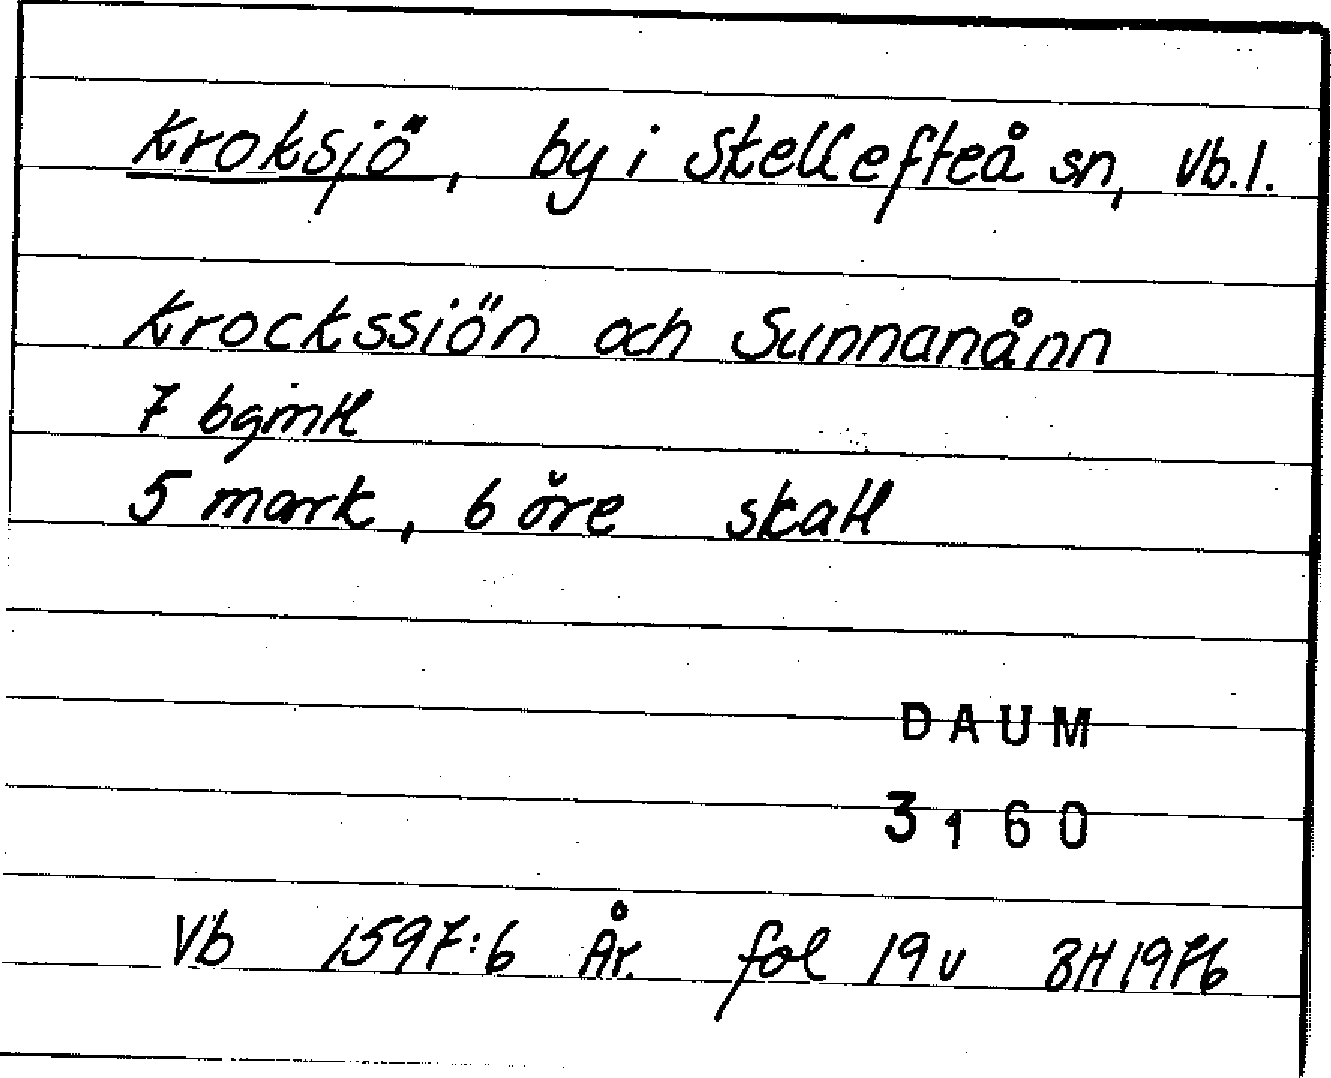 Kroksjö, by i Skellefteå sn, Vb.l.
Krockssiön och Sunnanånn
7 bgmtl
5 mark, 6 öre skatt
DAUM
3160
Vb 1597:6 År. fol 19v BH 1976